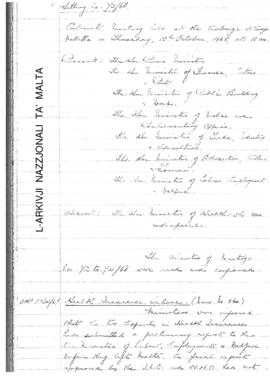 Sitting No. 73/68
Cabinet Meeting held at the Auberge
Valletta on Thursday, 10th October 1968, at 11 am
Present: The Hon. Prime Minister
The Hon. Minister of Finance, Customs
Port
The Hon. Minister of Public Building
Works
The Hon. Minister of Justice and
Parliamentary Affairs
The Hon. Minister of Trade, Industry
Agriculture
The Hon. Minister of Education, Culture
Tourism
The Hon. Minister of Labour Employment
Welfare
Absent: The Hon. Minister of Health who was
indisposed.
The Minutes of Meetings
Nos 70 to 72/68 were read and confirmed.
Health Insurance Scheme (Memo. No
Ministers were informed
that the two experts on Health Insurance
had submitted a preliminary report to the
Hon Minister of Labour, Employment & Welfare
before they left Malta. The final report
approved by the I.L.O. and W.H.O. had not
L-ARKIVJI NAZZJONALI TA' MALTA